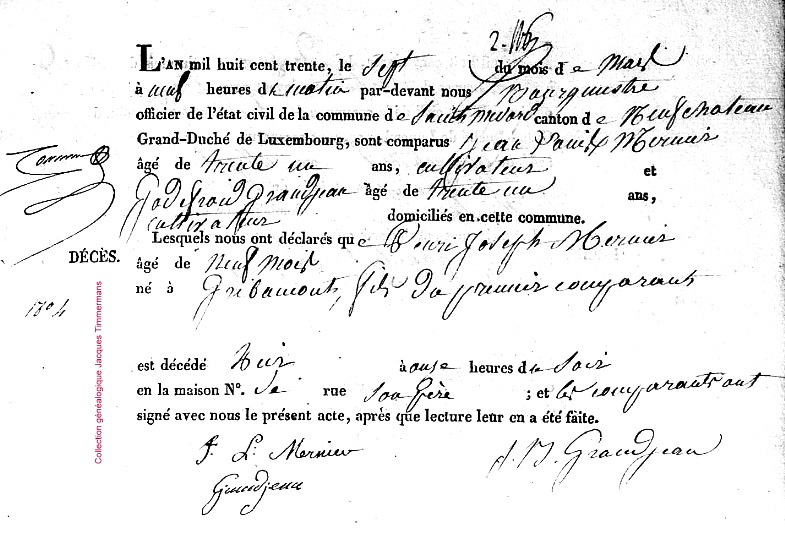 L'AN mil huit cent trente, le sept du mois de Mars
à neuf heures du matin par-devant nous Bourgmestre
officier de l'état civil de la commune de Saint medard canton de Neufchateau
Grand-Duché de Luxembourg, sont comparus Jean Louis Mernier
âgé de trente un ans, cultivateur et
Godefroid Grandjean âgé de trente un ans,
cultivateur domiciliés en cette commune.
Lesquels nous ont déclarés que Henri Joseph Mernier
DÉCÈS.
âgé de neuf mois
né à Gribamont, fils du premier comparant
1804
est décédé hier à onse heures du Soir
en la maison Nº. de rue son père ; et les comparants ont
signé avec nous le présent acte, après que lecture leur en a été faite.
J. L. Mernier
J. B. Grandjean
Grandjean
Collection généalogique Jacques Timmermans